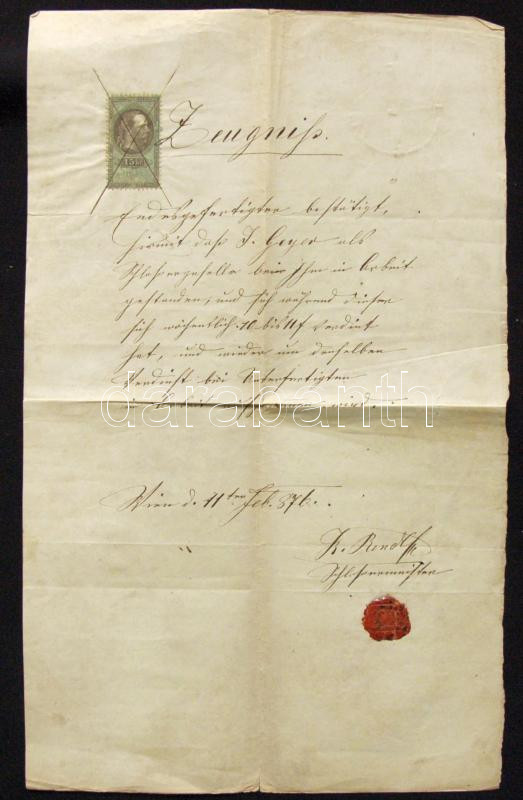 Zeugniß.
Endesgefertigter bestätigt,
hirmit daß J. Geyer als
Schlossergeselle beim Ihm in Arbeit
gestanden, und sich während dieser
sich wöchentlich 10 bis 11 f verdint
hat, und wieder um denselben
Verdinst bei Unterfertigten
in Arbeit wird.
darabanth
Wien d. 11ten Feb. 876.
K.
Schlossermeister